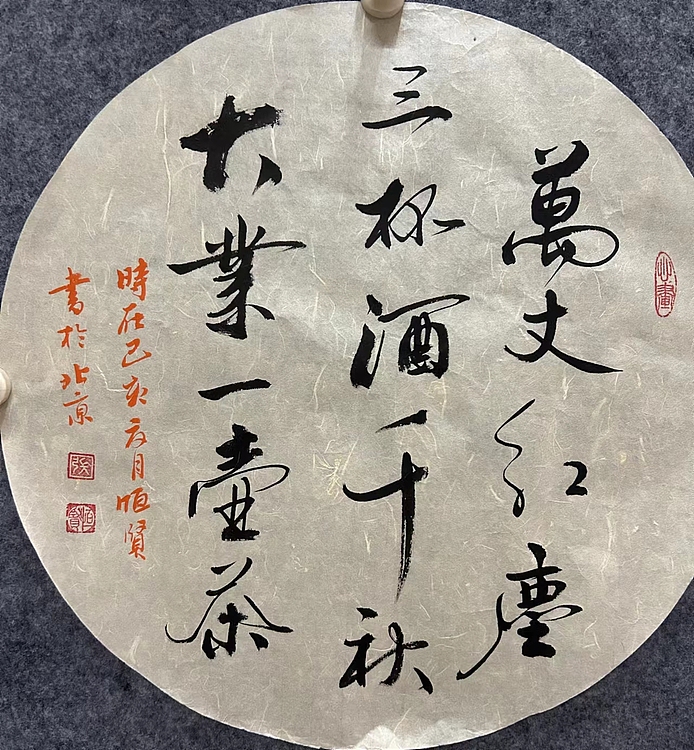 萬丈紅塵
三杯酒千秋
大業一壺茶
時在己亥夏月恒賢
書於北京
張
恒賢